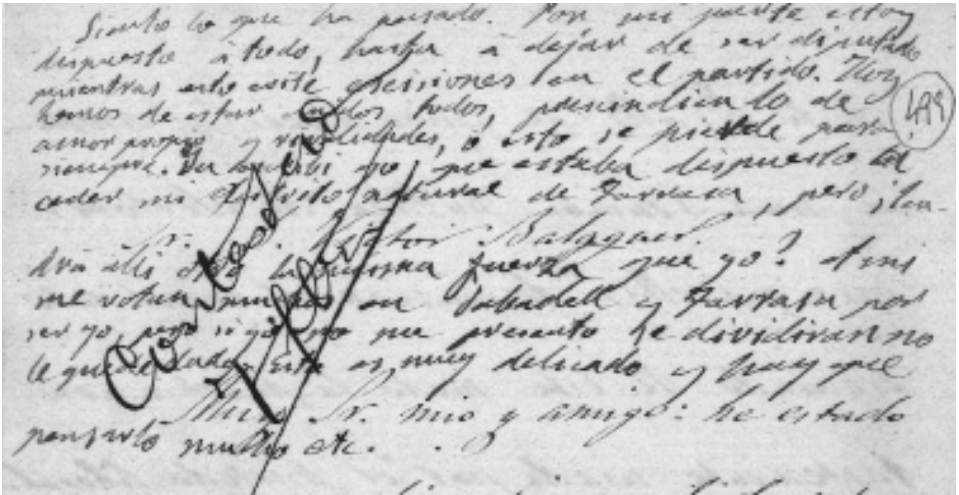 Siento lo que ha pasado. Por mi parte estoy
dispuesto á todo, hasta á dejar de ser diputado
mientras esto evite escisiones en el partido. Hoy
hemos de estar unidos todos, prescindiendo de
amor propio y rivalidades, ó esto se pierde para
siempre. Ya le escribí yo, que estaba dispuesto á
ceder mi distrito natural de Tarrasa, pero ¿ten-
Sr. Víctor Balaguer.
drá allí otro la misma fuerza que yo? A mi
me votan muchos en Sabadell y Tarrasa por
ser yo, pero si yo no me presento se dividiran no
le quede duda. Esto es muy delicado y hay que
Muy Sr. mio y amigo: he estado
pensarlo mucho etc.
Contestada
7 Mar
199